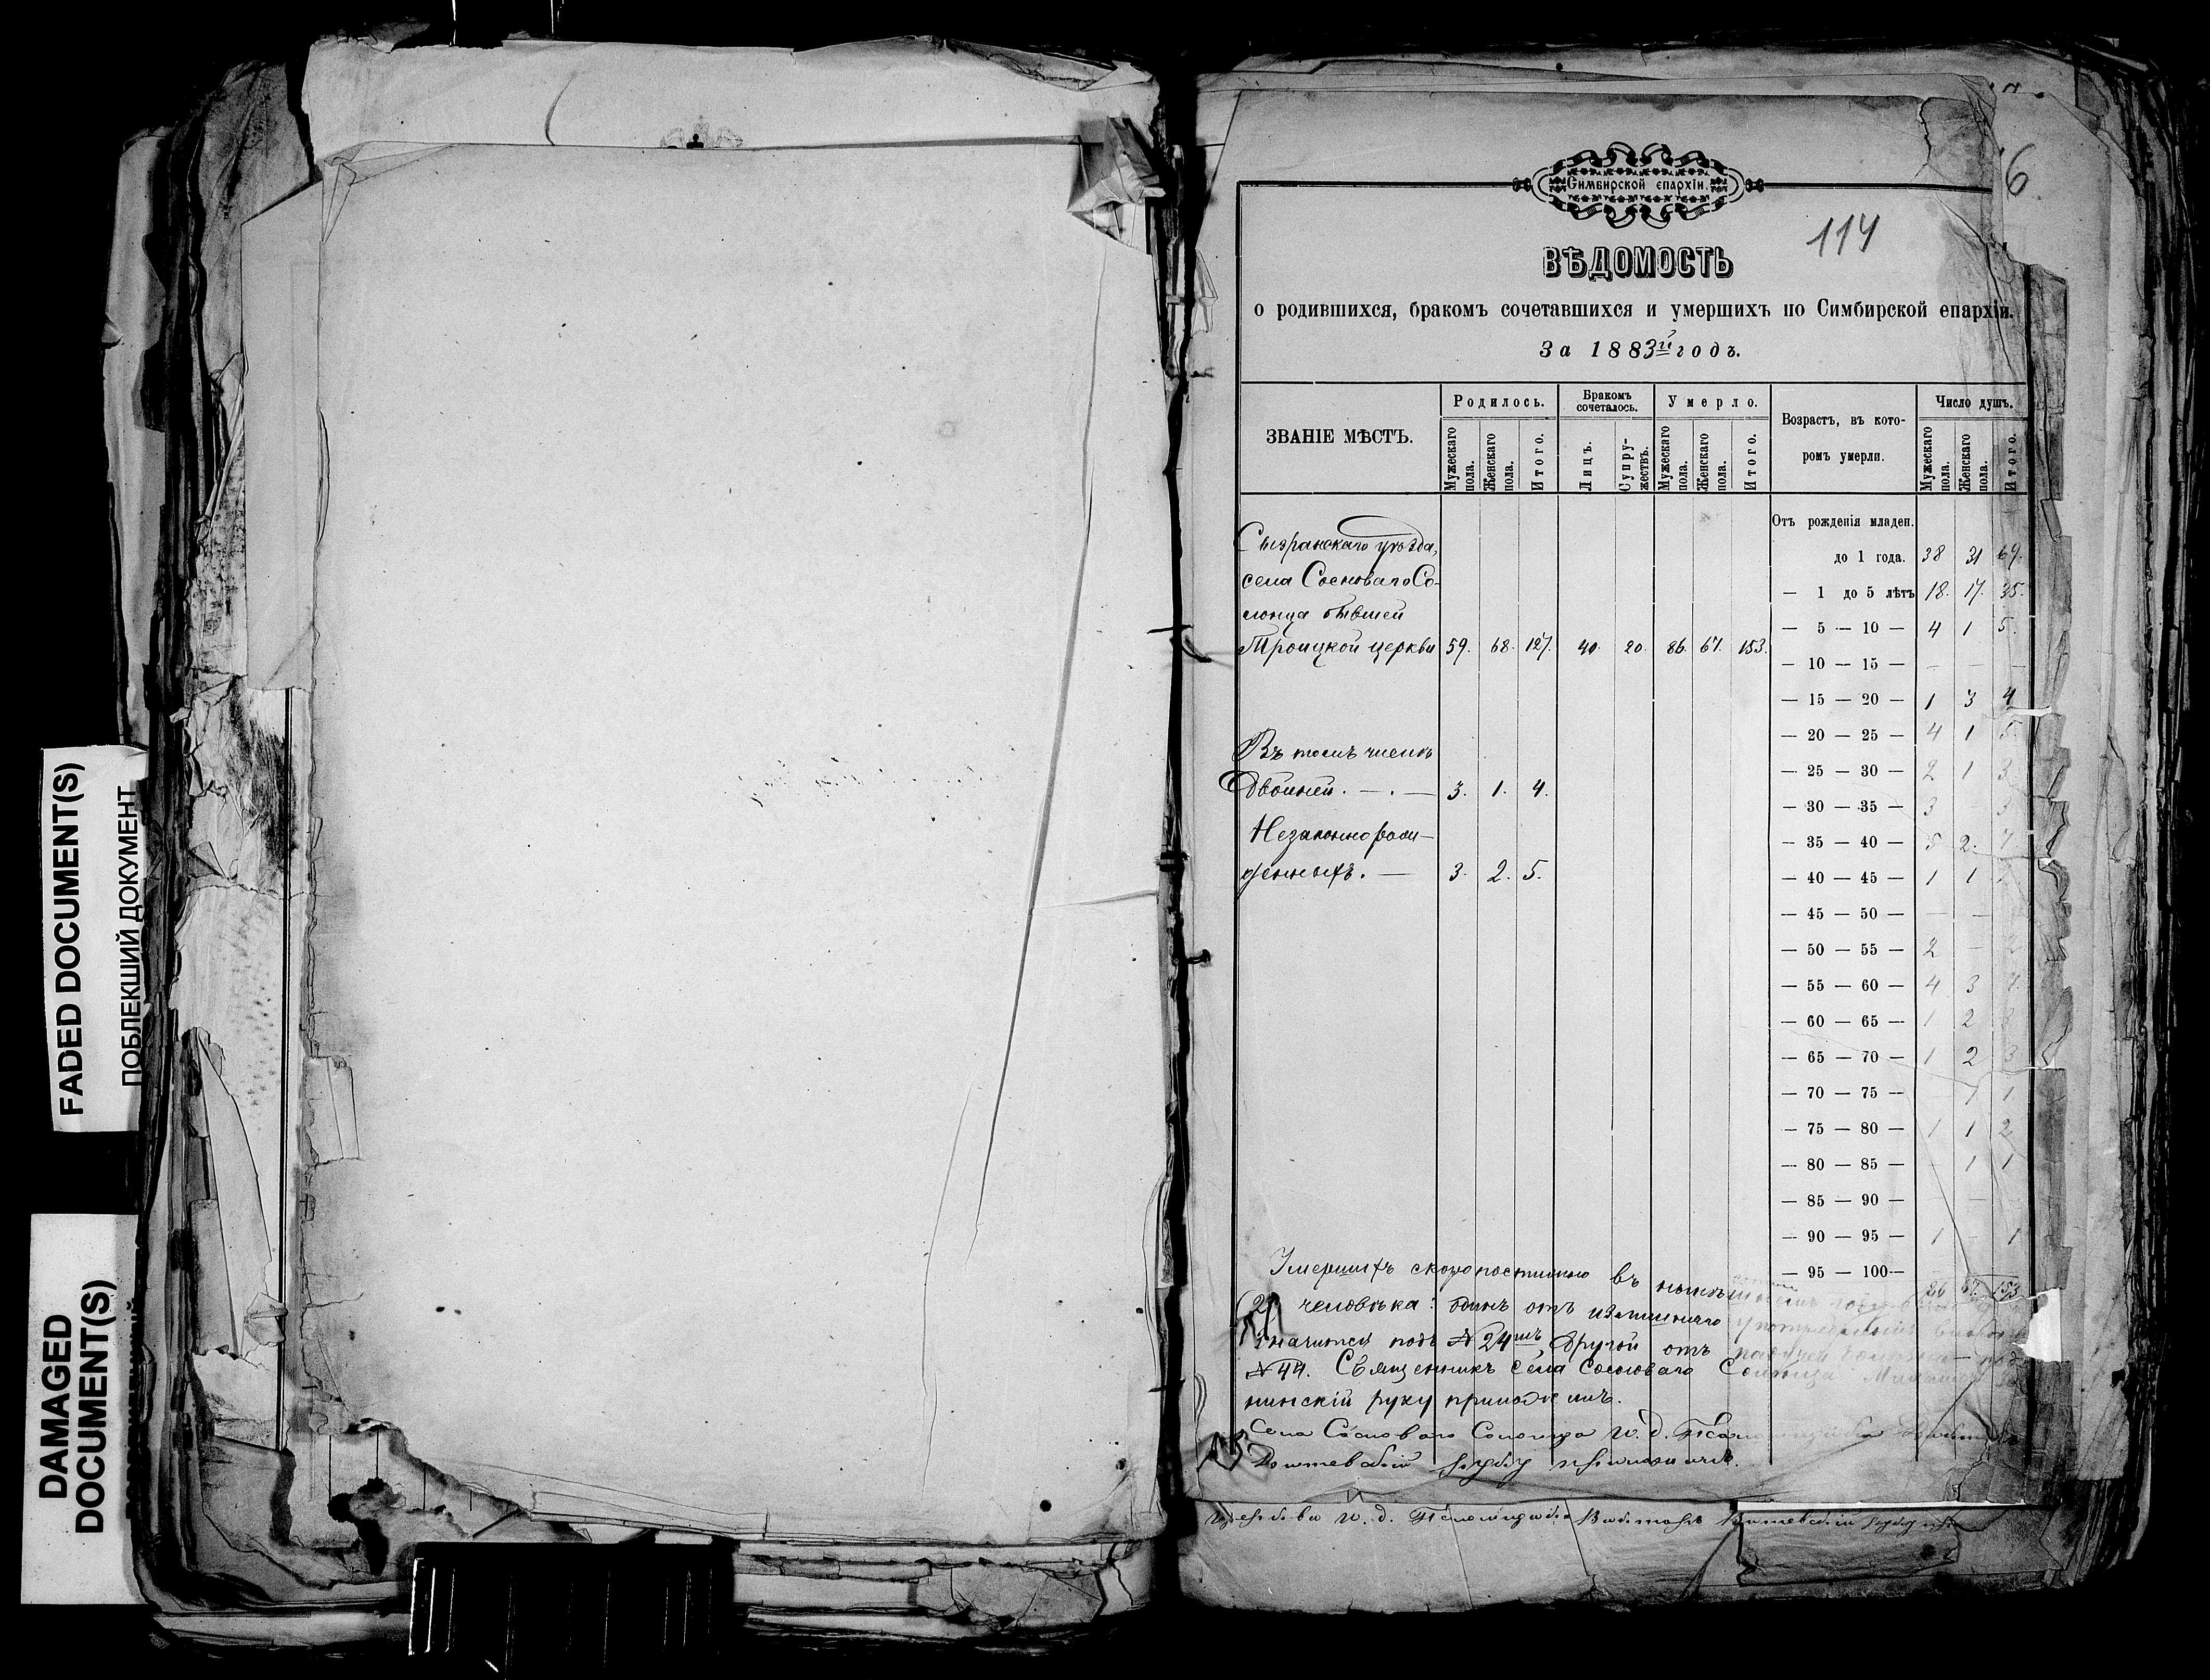 FADED DOCUMENT(S)
ПОБЛЕКШИЙ ДОКУМЕНТ
DAMAGED
DOCUMENT(S)
6
Симбирской епархіи.
114
ВѢДОМОСТЬ
о родившихся, бракомъ сочетавшихся и умершихъ по Симбирской епархіи.
За 1883й годъ.
ЗВАНІЕ МѢСТЪ. Родилось. Бракомъ сочеталось. Умерло. Возрастъ, въ которомъ умерли. Число душъ.
Мужескаго пола. Женскаго пола. Итого. Лицъ. Супружествъ. Мужескаго пола. Женскаго пола. Итого. Мужескаго пола. Женскаго пола. Итого.
Отъ рожденія младен.
Сызранскаго уѣзда,
до 1 года. 38 31 69.
села Сосноваго Со-
— 1 до 5 лѣтъ 18. 17. 35.
лонца бывшей
— 5 — 10 — 4 1 5.
Троицкой церкви 59. 68. 127. 40. 20. 86. 67. 153.
— 10 — 15 — — — —
— 15 — 20 — 1 3 4
— 20 — 25 — 4 1 5.
Въ томъ числѣ
— 25 — 30 — 2 1 3
двойней. — . — 3. 1. 4.
— 30 — 35 — 3 3
Незаконнорож-
— 35 — 40 — 5 2. 7
денныхъ. — 3. 2. 5.
— 40 — 45 — 1 1
— 45 — 50 — — —
— 50 — 55 — 2 —
— 55 — 60 — 4 3 7.
— 60 — 65 — 1 2
— 65 — 70 — 1 2 3
— 70 — 75 — 1 1
— 75 — 80 — 1 1 2
— 80 — 85 — 1 1
— 85 — 90 —
— 90 — 95 — 1 — 1
— 95 — 100 —
86 67. 153
Умершихъ скоропостижно въ
2 человѣка: одинъ отъ излишняго
значится подъ №24мъ другой отъ
№ 44. Священникъ села Сосноваго Солонца
нинскій руку приложилъ.
Села Сосноваго Солонца И. д.
руку приложилъ.
И. д.